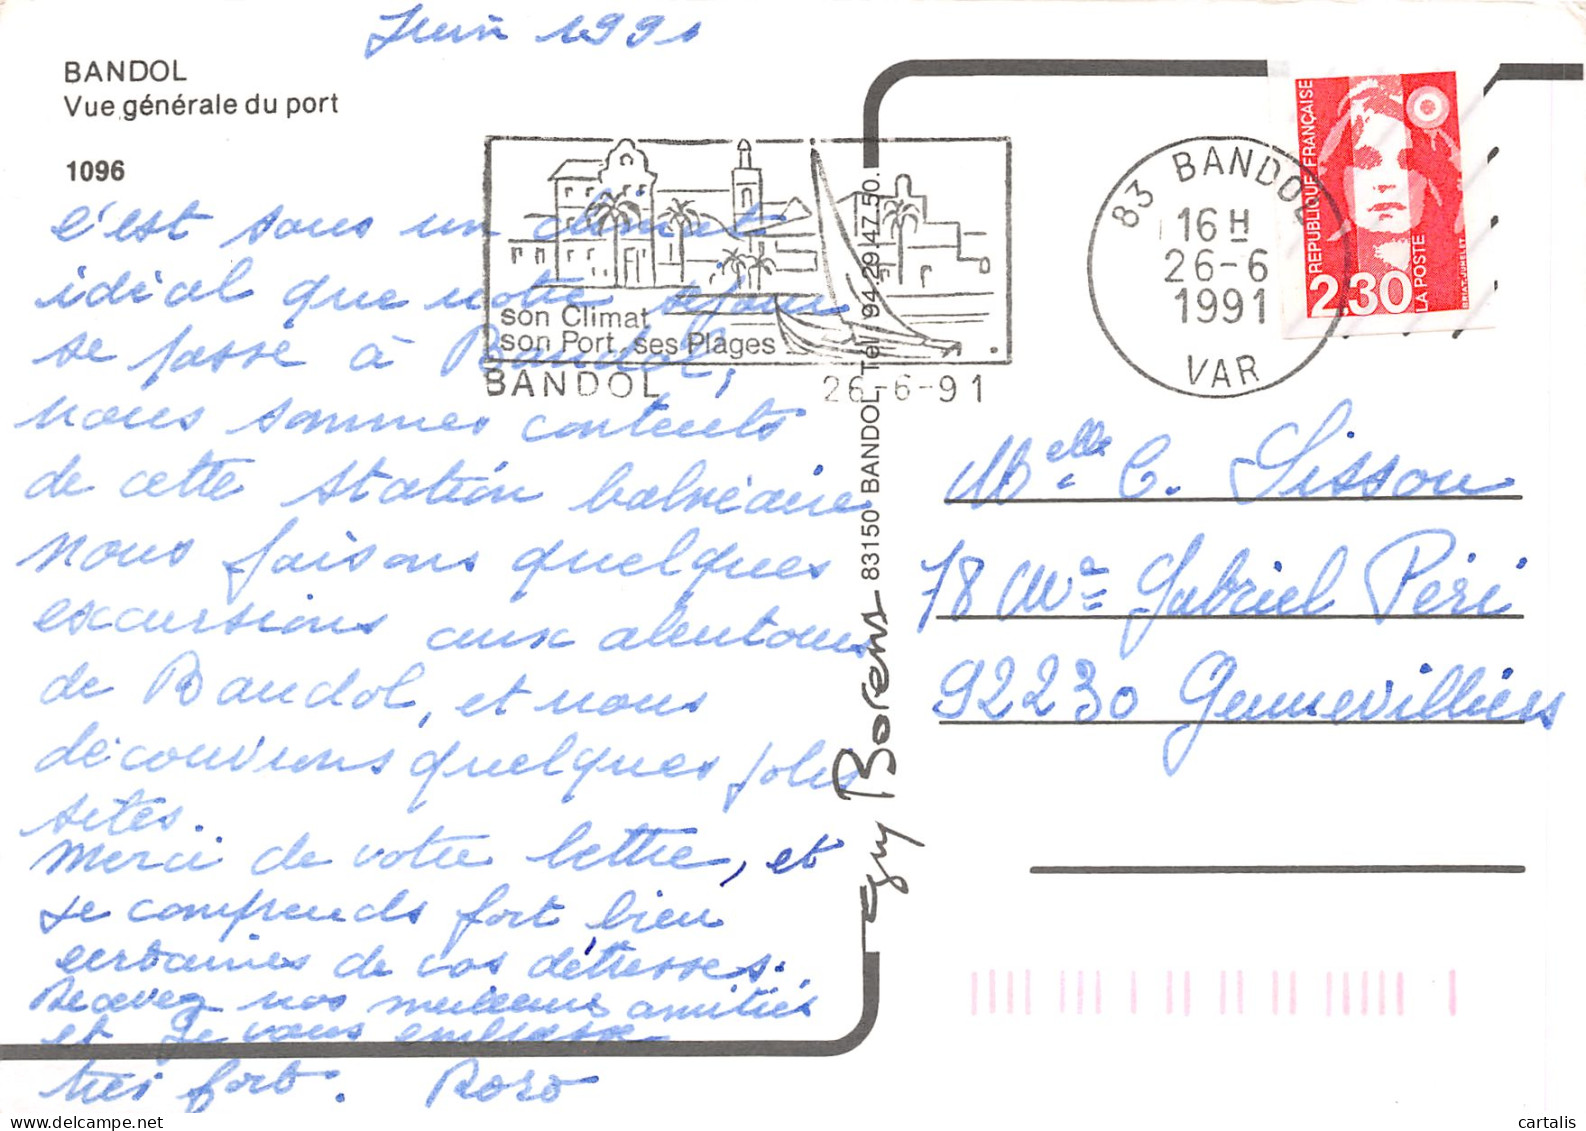 Juin 1991
BANDOL
Vue générale du port
1096
c'est sous un climat
idéal que notre séjour
se passe à Bandol,
nous sommes contents
de cette station balnéaire
nous faisons quelques
excursions aux alentours
de Bandol, et nous
découvrons quelques jolis
sites.
Merci de votre lettre, et
je comprends fort bien
certaines de vos détresses.
Recevez nos meilleures amitiés
et je vous embrasse
très fort. Roro
son Climat
son Port, ses Plages
BANDOL 26-6-91
83 BANDOL
16 H
26-6
1991
VAR
RÉPUBLIQUE FRANÇAISE
2,30
LA POSTE
BRIAT-JUMELET
83150 BANDOL Tél. 94.29.47.50.
guy Borens
Melle C. Sisson
78 Ave Gabriel Péri
92230 Gennevilliers
cartalis
www.delcampe.net